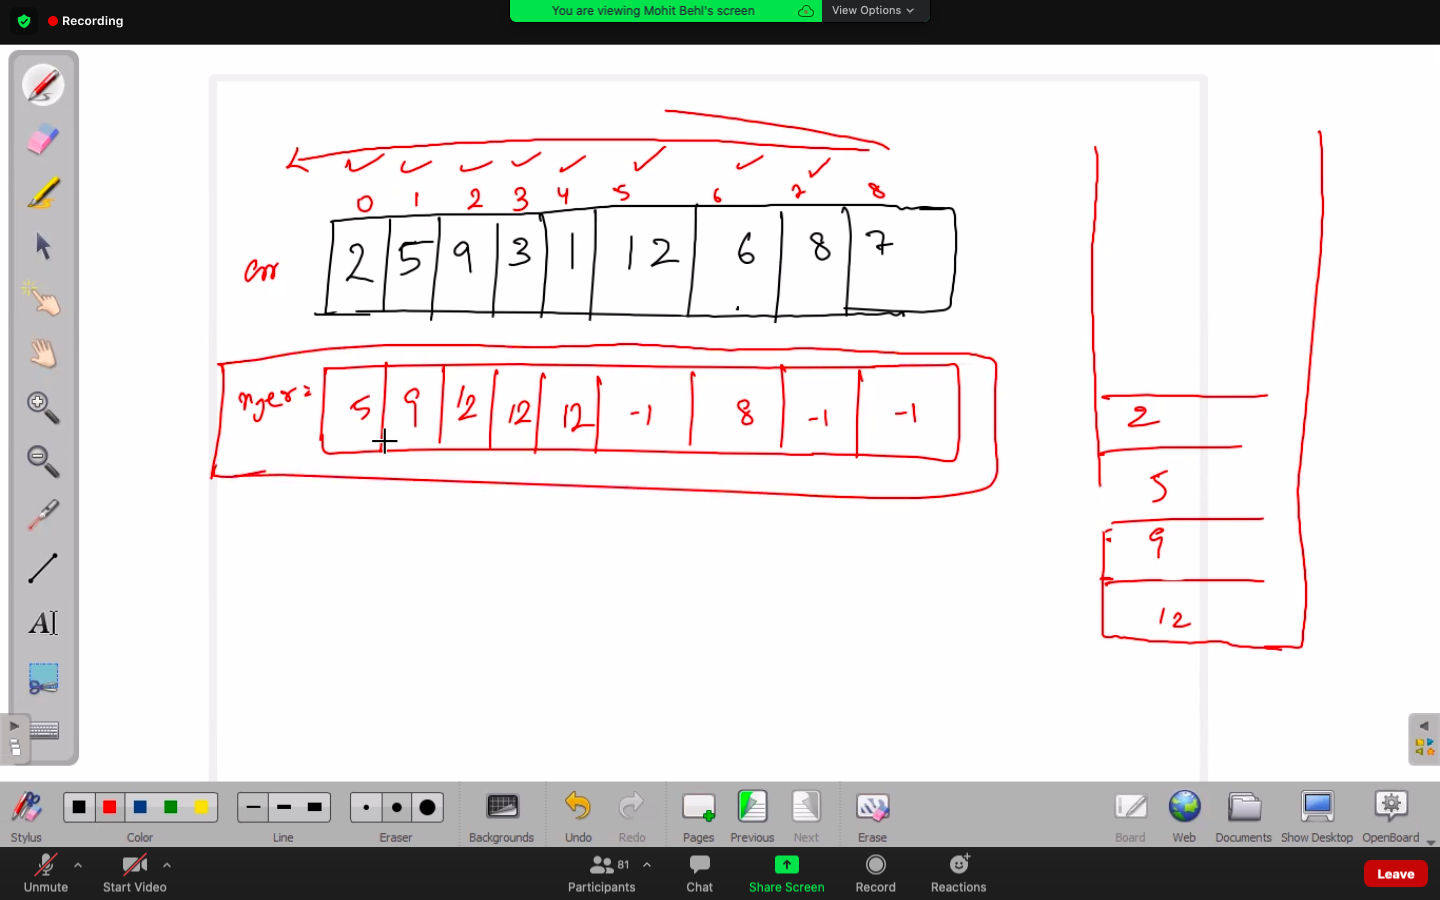 Recording
You are viewing Mohit Behl's screen
View Options
0 1 2 3 4 5 6 7 8
arr 2 5 9 3 1 12 6 8 7
nger= 5 9 12 12 12 -1 8 -1 -1
2
5
9
12
Stylus Color Line Eraser Backgrounds Undo Redo Pages Previous Next Erase Board Web Documents Show Desktop OpenBoard
Unmute Start Video Participants 81 Chat Share Screen Record Reactions Leave